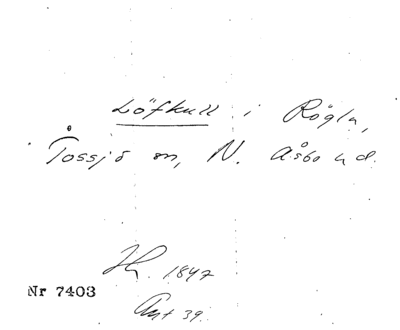 Löfkull i Rögla,
Tossjö sn, N. Åsbo hd.
H. 1847
Nr 7403
Ant 39.